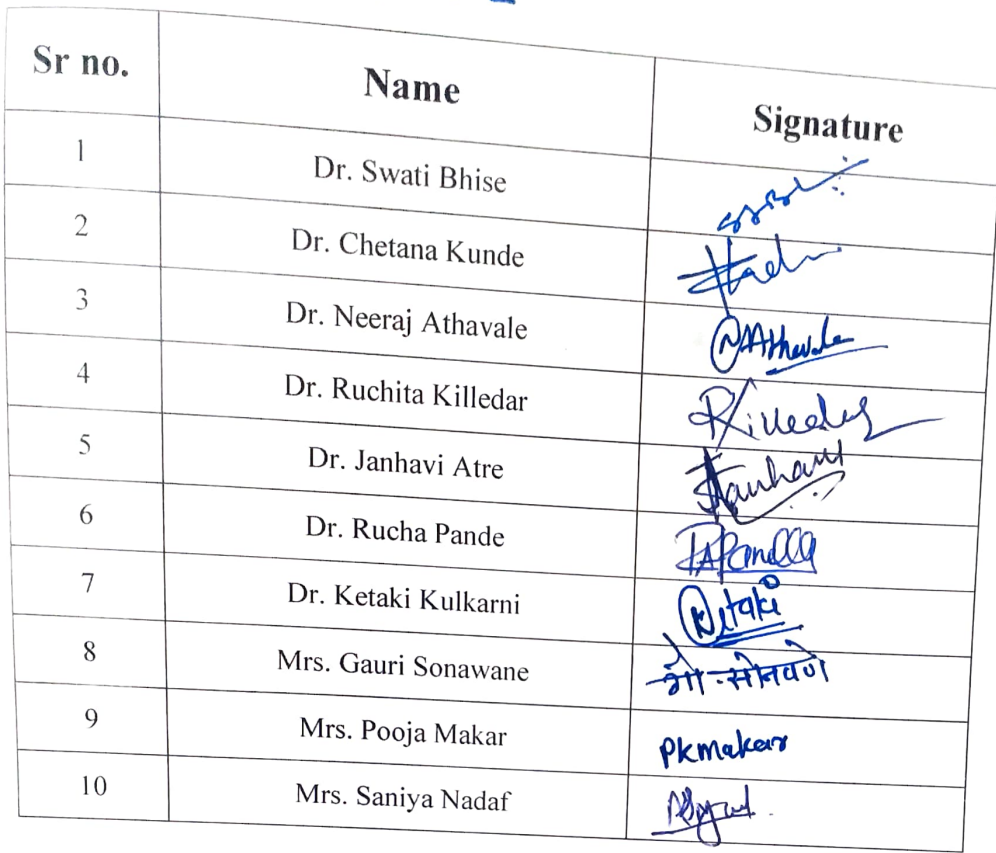 Sr no. Name Signature
1 Dr. Swati Bhise
2 Dr. Chetana Kunde
3 Dr. Neeraj Athavale NAAthavale
4 Dr. Ruchita Killedar RKilledar
5 Dr. Janhavi Atre Janhavi
6 Dr. Rucha Pande
7 Dr. Ketaki Kulkarni Ketaki
8 Mrs. Gauri Sonawane गौ. सोनवणे
9 Mrs. Pooja Makar PKmakar
10 Mrs. Saniya Nadaf